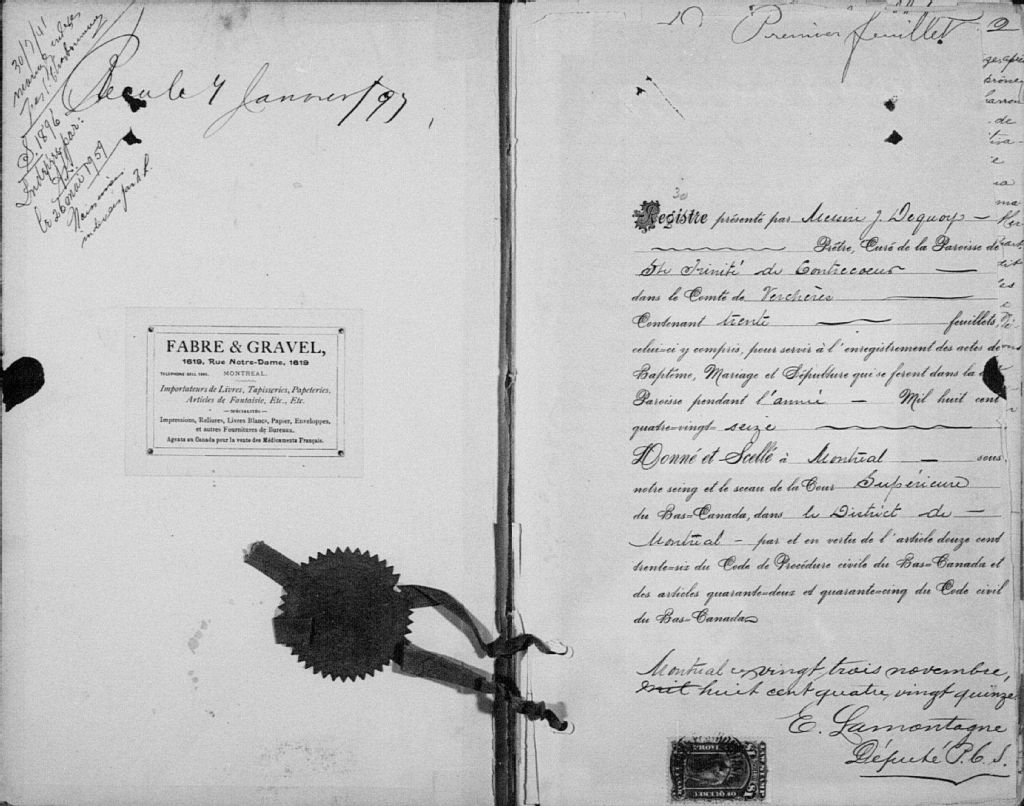 30/7/41
S. 1896
Indexé par:
le 26 mai 1959
Reçu le 7 Janvier/97
FABRE & GRAVEL,
1619, Rue Notre-Dame, 1619
TELEPHONE BELL
MONTREAL.
Importateurs de Livres, Tapisseries, Papeteries,
Articles de Fantaisie, Etc., Etc.
—SPÉCIALITÉS—
Impressions, Reliures, Livres Blancs, Papier, Enveloppes,
et autres Fournitures de Bureaux.
Agents au Canada pour la vente des Médicaments Français.
Premier feuillet
2
30
Registre présenté par Messire J. Dequoy —
Prêtre, Curé de la Paroisse de
Ste Trinité de Contrecoeur —
dans le Comté de Verchères —
Contenant trente — feuillets,
celui-ci y compris, pour servir à l'enregistrement des actes de
Baptême, Mariage et Sépulture qui se feront dans la
Paroisse pendant l'année — Mil huit cent
quatre-vingt seize
Donné et Scellé à Montréal — sous
notre seing et le sceau de la Cour Supérieure
du Bas-Canada, dans le District de —
Montréal — par et en vertu de l'article douze cent
trente-six du Code de Procédure civile du Bas-Canada et
des articles quarante-deux et quarante-cinq du Code civil
du Bas-Canada
Montréal ce vingt trois novembre,
mil huit cent quatre vingt quinze
E. Lamontagne
Député P.C.S.
LAW STAMP
OF QUEBEC